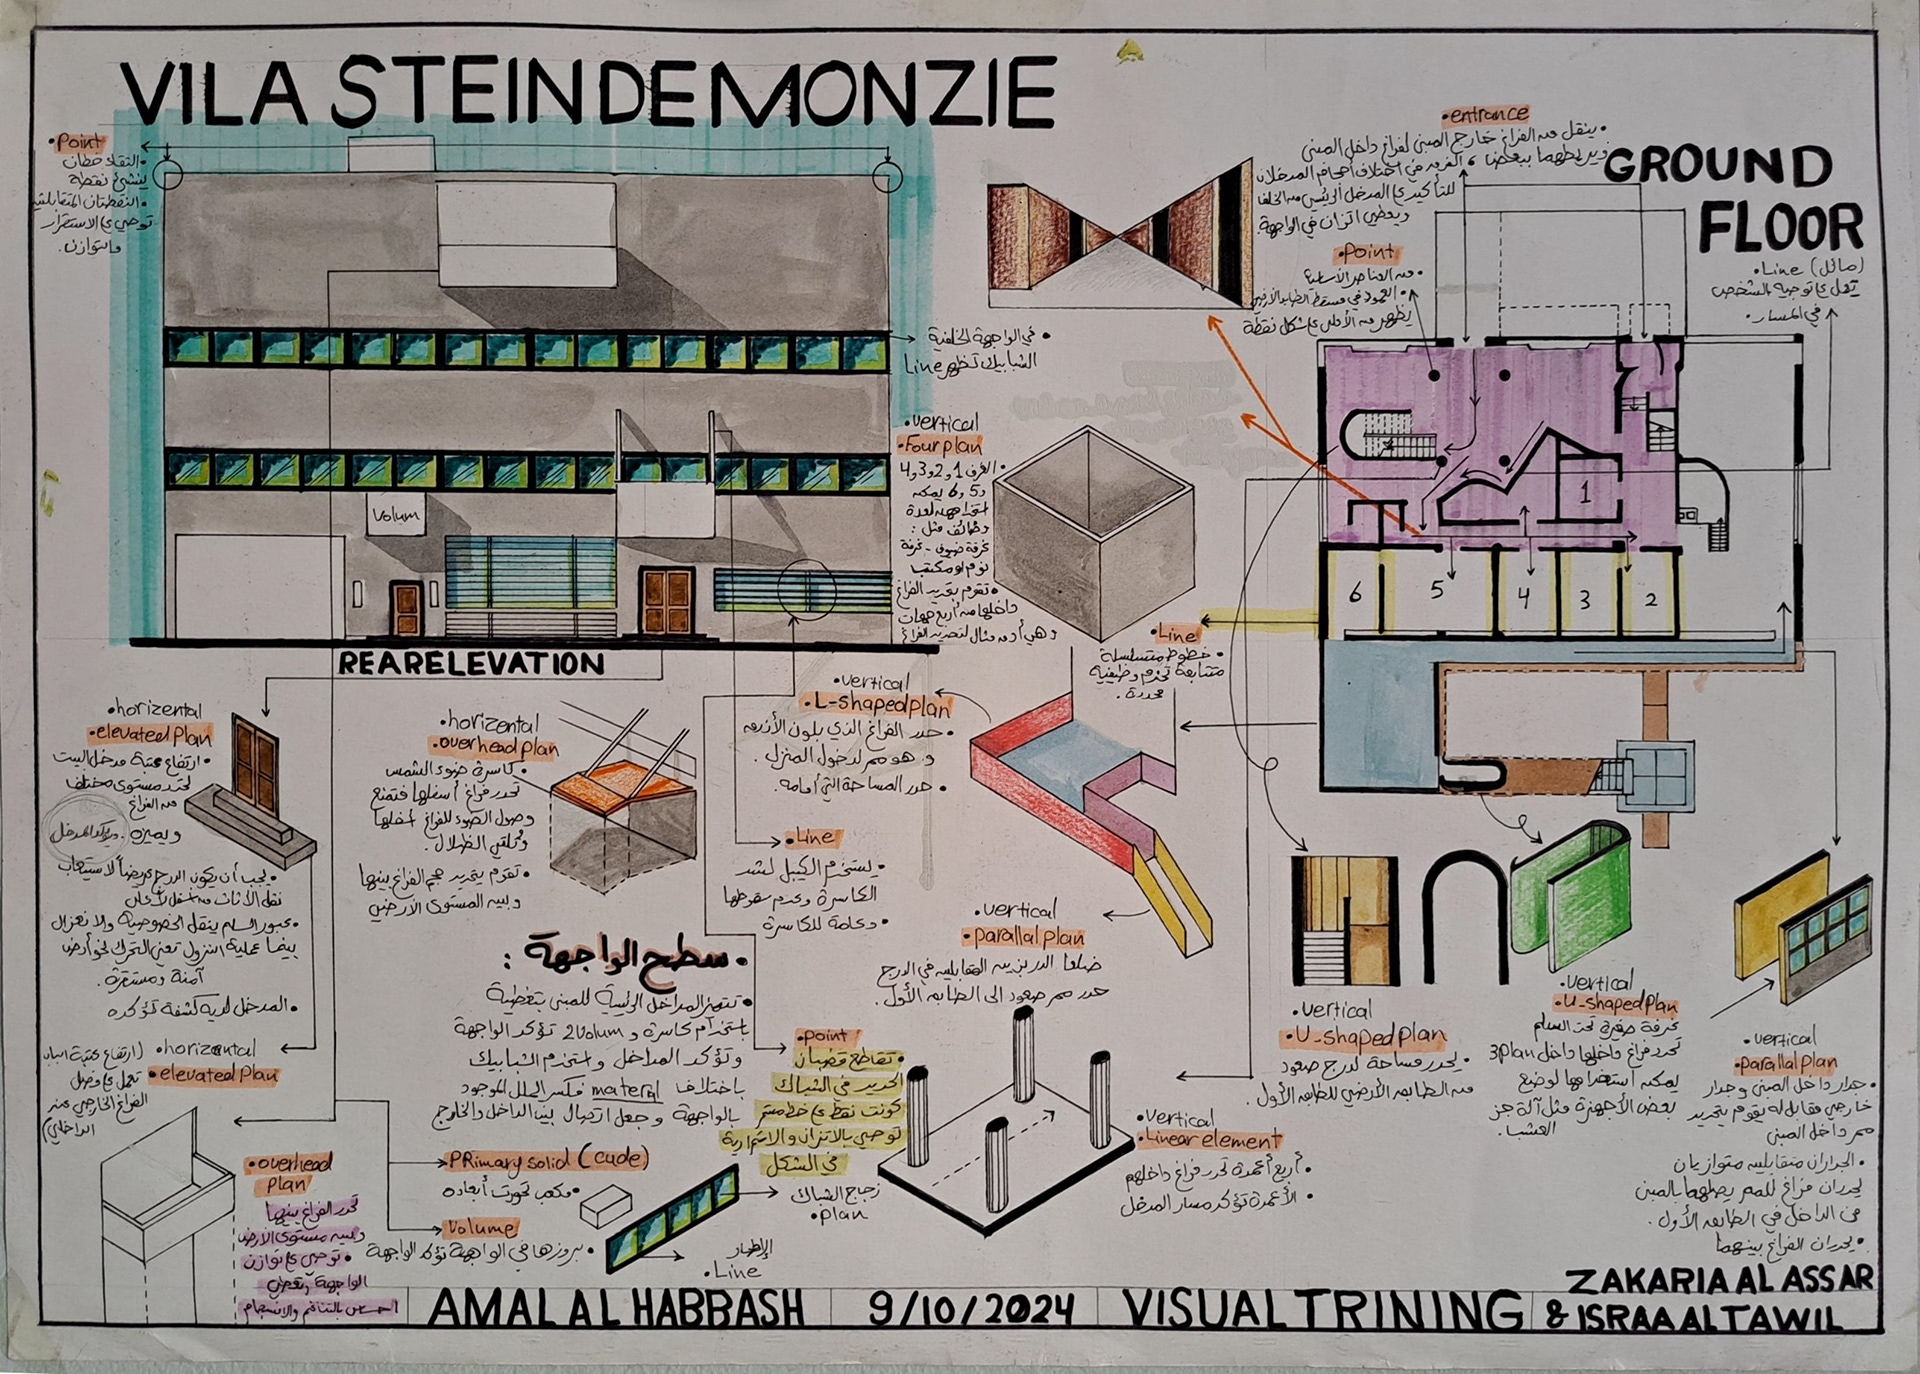 VILA STEIN DE MONZIE
•Point
•التقاء خطان
ينشئ نقطة
•النقطتان المتقابلتين
توحي ع الاستقرار
والتوازن.
Volum
REAR ELEVATION
•في الواجهة الخلفية
الشبابيك تظهر Line
•vertical
•Four plan
•الغرف 1 و2 و3 و4
و5 و6 يمكن
وظائف مثل:
نوم او مكتب
•تقوم بتحديد الفراغ
داخلها من أربع جهات
•entrance
•ينقل من الفراغ خارج المبنى لفراغ داخل المبنى
للتأكيد ع المدخل الرئيسي من الخلف
ويعطي اتزان في الواجهة.
•Point
•من العناصر الأساسية
•العمود في مسقط الطابق الأرضي
يظهر من الأعلى ع شكل نقطة
GROUND
FLOOR
•Line (مائل)
تعمل ع توجيه الشخص
في المسار.
1
6
5
4
3
2
•Line
•خطوط متسلسلة
متتابعة تخدم وظيفية
محددة.
•horizontal
•elevated plan
•ارتفاع عتبة مدخل البيت
تحدد مستوى مختلف
من الفراغ
ويميزه. ويؤكد المدخل
•يجب أن يكون الدرج عريضاً لاستيعاب
نقل الأثاث من أسفل لأعلى
•عبور السلم ينقل الخصوصية والانعزال
بينما عملية النزول تعني التحرك نحو أرض
آمنة ومستقرة.
•المدخل لديه كشفة تؤكده
•horizontal
•elevated plan
(ارتفاع عتبة الباب
تعمل ع فصل
الفراغ الخارجي عن
الداخلي)
•horizontal
•overhead plan
•كاسرة ضوء الشمس
تحدد فراغ أسفلها فتمنع
وصول الضوء للفراغ أسفلها
وتلقي الظلال.
•تقوم بتحديد حجم الفراغ بينها
وبين المستوى الأرضي
•vertical
•L-shaped plan
•حدد الفراغ الذي بلون الأزرق
و هو ممر لدخول المنزل.
•حدد المساحة التي أمامه.
•Line
•يستخدم الكيبل لشد
الكاسرة وعدم سقوطها
•دعامة للكاسرة
•سطح الواجهة:
•تتميز المداخل الرئيسية للمبنى بتغطية
باستخدام كاسرة و 2Volum تؤكد الواجهة
وتؤكد المداخل واستخدم الشبابيك
باختلاف material فكسر الملل الموجود
بالواجهة وجعل اتصال بين الداخل والخارج
•vertical
•parallal plan
ضلعا الدربزين المتقابلين في الدرج
حدد ممر صعود الى الطابق الأول.
•point
•تقاطع قضبان
الحديد في الشباك
كونت نقطة ع خط مستقيم
توحي بالاتزان والاستمرارية
في الشكل
•vertical
•Linear element
•أربع أعمدة تحدد فراغ داخلهم
•الأعمدة تؤكد مسار المدخل
•vertical
•U-shaped plan
•يحدد مساحة لدرج صعود
من الطابق الأرضي للطابق الأول.
•vertical
•U-shaped plan
غرفة صغيرة تحت السلم
تحدد فراغ داخلها داخل 3plan
يمكن استخدامها لوضع
بعض الأجهزة مثل آلة جز
العشب.
•vertical
•parallal plan
•جدار داخل المبنى وجدار
خارجي مقابل له يقوم بتحديد
ممر داخل المبنى
•الجداران متقابلين متوازيان
يحددان فراغ للممر يصلهما بالمبنى
من الداخل في الطابق الأول.
•يحددان الفراغ بينهما
•overhead
plan
تحدد الفراغ بينها
وبين مستوى الارض
•توحي ع توازن
الواجهة وتعطي
احساس بالتناغم والانسجام
•PRimary solid (cude)
•مكعب تحورت أبعاده
•Volume
•بروزها في الواجهة تؤكد الواجهة
زجاج الشباك
•plan
الإطار
•Line
AMAL AL HABBASH
9/10/2024
VISUAL TRINING
ZAKARIA AL ASSAR
& ISRAA AL TAWIL